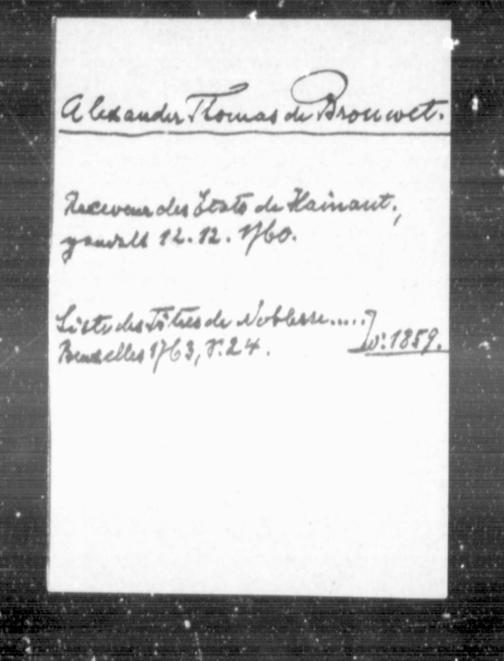 Alexander Thomas de Brouwet.
Receveur des Etats de Hainaut,
geadelt 12.12.1760.
Liste des Titres de Noblesse.....
Bruxelles 1763, S. 24. v: 1859.